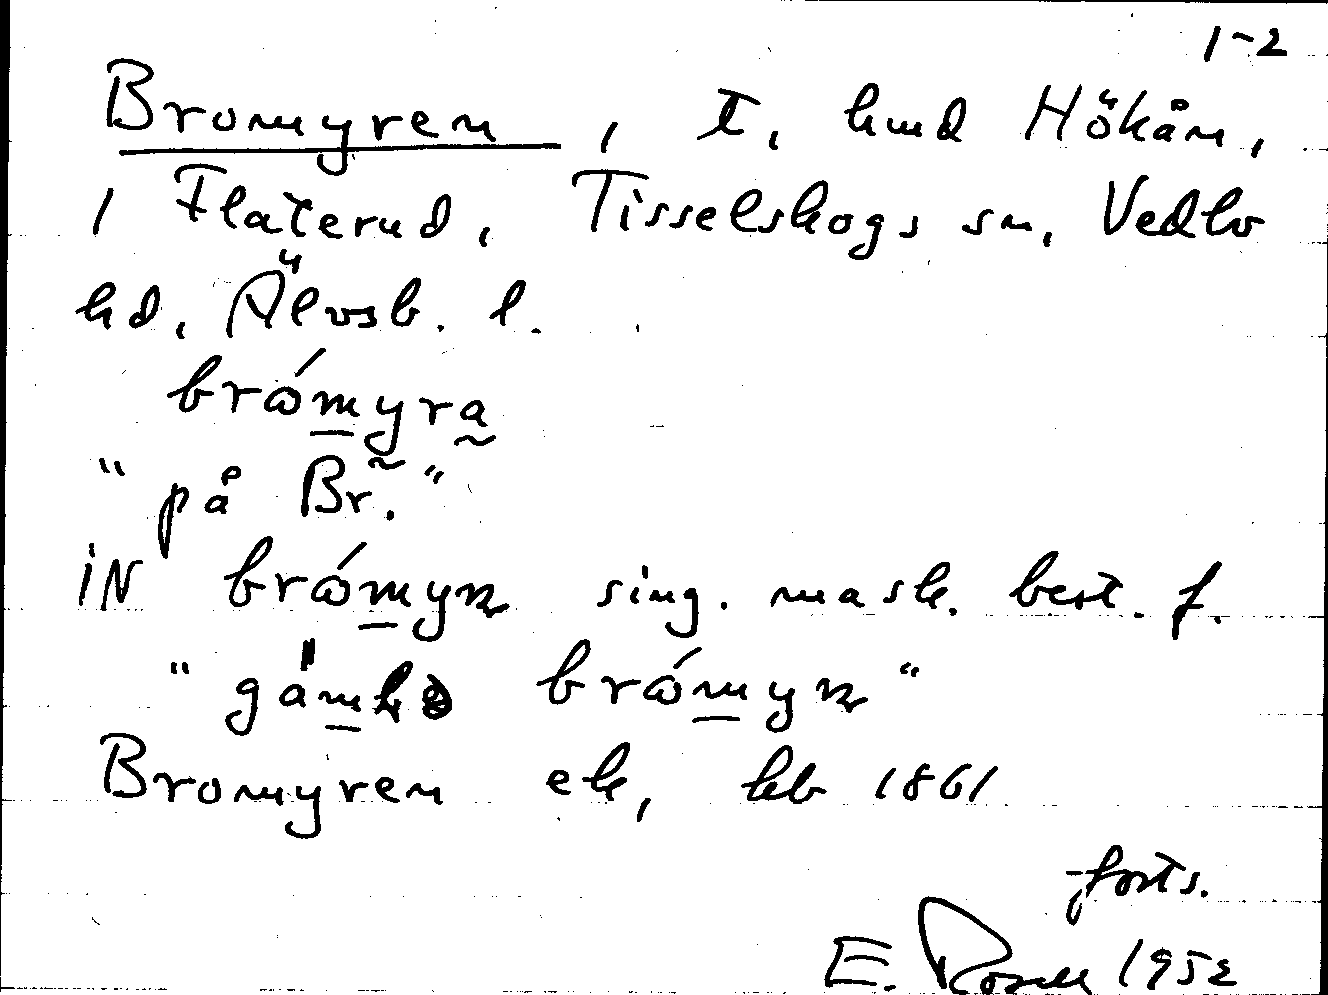 1-2
Bromyren, t, hmd Hökån,
1 Flaterud, Tisselskogs sn, Vedbo
hd, Älvsb. l.
brómyra
"på Br."
iN brómyṇ sing. mask. best. f.
" brómyṇ"
Bromyren ek, kb 1861
forts.
E. Rosell 1952